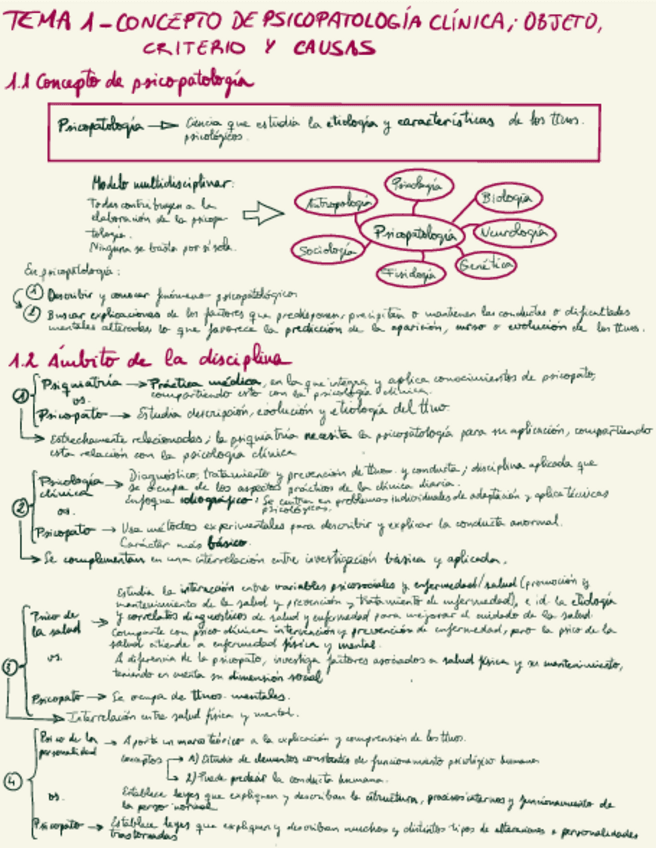 TEMA 1 - CONCEPTO DE PSICOPATOLOGÍA CLÍNICA; OBJETO,
CRITERIO Y CAUSAS
1.1 Concepto de psicopatología
Psicopatología → Ciencia que estudia la etiología y características de los ttnos.
psicológicos.
Modelo multidisciplinar:
Todas contribuyen a la
elaboración de la psicopa-
tología.
Ninguna se basta por sí sola.
Psicología
Antropología
Biología
Psicopatología
Neurología
Sociología
Fisiología
Genética
En psicopatología:
1 Describir y conocer fenómenos psicopatológicos
2 Buscar explicaciones de los factores que predisponen, precipitan o mantienen las conductas o dificultades
mentales alteradas, lo que favorece la predicción de la aparición, curso o evolución de los ttnos.
1.2 Ámbito de la disciplina
1 Psiquiatría → Práctica médica, en la que integra y aplica conocimientos de psicopato,
compartiendo esto con la psicología clínica.
vs.
Psicopato → Estudia descripción, evolución y etiología del ttno.
→ Estrechamente relacionadas; la psiquiatría necesita la psicopatología para su aplicación, compartiendo
esta relación con la psicología clínica
2 Psicología clínica → Diagnóstico, tratamiento y prevención de ttnos. y conducta; disciplina aplicada que
se ocupa de los aspectos prácticos de la clínica diaria.
enfoque idiográfico: Se centra en problemas individuales de adaptación y aplica técnicas
psicológicas.
vs.
Psicopato → Usa métodos experimentales para describir y explicar la conducta anormal.
Carácter más básico.
→ Se complementan en una interrelación entre investigación básica y aplicada.
3 Psico de la salud → Estudia la interacción entre variables psicosociales y enfermedad/salud (promoción y
mantenimiento de la salud y prevención y tratamiento de enfermedad), e id. la etiología
y correlatos diagnósticos de salud y enfermedad para mejorar el cuidado de la salud.
Comparte con psico clínica intervención y prevención de enfermedad, pero la psico de la
salud atiende a enfermedad física y mental.
vs.
A diferencia de la psicopato, investiga factores asociados a salud física y su mantenimiento,
teniendo en cuenta su dimensión social
Psicopato → Se ocupa de ttnos. mentales.
→ Interrelación entre salud física y mental.
4 Psico de la personalidad → Aporta un marco teórico a la explicación y comprensión de los ttnos.
conceptos → 1) Estudio de elementos constantes de funcionamiento psicológico humano
→ 2) Puede predecir la conducta humana.
vs.
Establece leyes que expliquen y describan la estructura, procesos internos y funcionamiento de
la perso normal
Psicopato → Establece leyes que expliquen y describan muchos y distintos tipos de alteraciones o personalidades
trastornadas